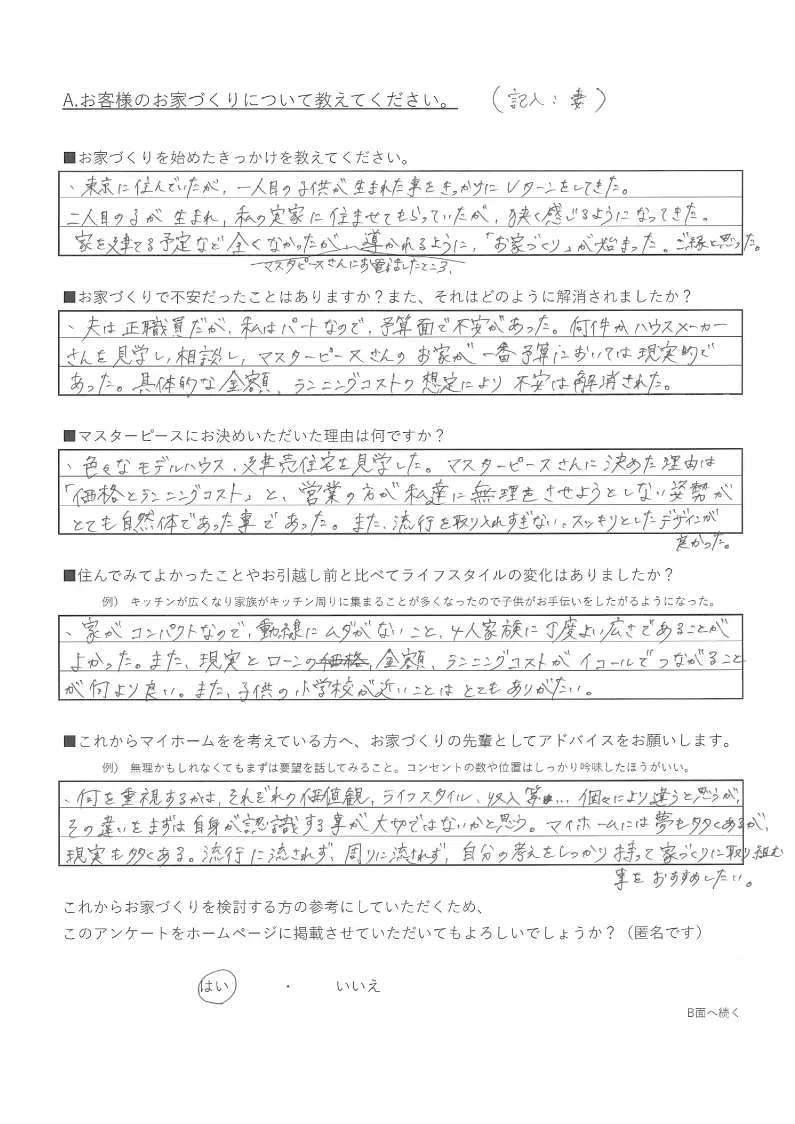 A.お客様のお家づくりについて教えてください。 (記入：妻)
■お家づくりを始めたきっかけを教えてください。
、東京に住んでいたが、一人目の子供が生まれた事をきっかけにUターンをしてきた。
二人目の子が生まれ、私の実家に住ませてもらっていたが、狭く感じるようになってきた。
家を建てる予定など全くなかったが、導かれるように、「お家づくり」が始まった。ご縁と思った。
マスタピースさんにお電話したところ、
■お家づくりで不安だったことはありますか？また、それはどのように解消されましたか？
、夫は正職員だが、私はパートなので、予算面で不安があった。何件かハウスメーカー
さんを見学し、相談し、マスターピースさんのお家が一番予算においては現実的で
あった。具体的な金額、ランニングコストの想定により不安は解消された。
■マスターピースにお決めいただいた理由は何ですか？
、色々なモデルハウス、建売住宅を見学した。マスターピースさんに決めた理由は
「価格とランニングコスト」と、営業の方が私達に無理をさせようとしない姿勢が
とても自然体であった事であった。また、流行を取り入れすぎない、スッキリとしたデザインが
良かった。
■住んでみてよかったことやお引越し前と比べてライフスタイルの変化はありましたか？
例） キッチンが広くなり家族がキッチン周りに集まることが多くなったので子供がお手伝いをしたがるようになった。
、家がコンパクトなので、動線にムダがないこと、4人家族に丁度よい広さであることが
よかった。また、現実とローンの価格、金額、ランニングコストがイコールでつながること
が何より良い。また、子供の小学校が近いことはとてもありがたい。
■これからマイホームをを考えている方へ、お家づくりの先輩としてアドバイスをお願いします。
例） 無理かもしれなくてもまずは要望を話してみること。コンセントの数や位置はしっかり吟味したほうがいい。
、何を重視するかは、それぞれの価値観、ライフスタイル、収入等…個々により違うと思うが、
その違いをまずは自身が認識する事が大切ではないかと思う。マイホームには夢も多くあるが、
現実も多くある。流行に流されず、周りに流されず、自分の考えをしっかり持って家づくりに取り組む
事をおすすめしたい。
これからお家づくりを検討する方の参考にしていただくため、
このアンケートをホームページに掲載させていただいてもよろしいでしょうか？（匿名です）
はい ・ いいえ
B面へ続く